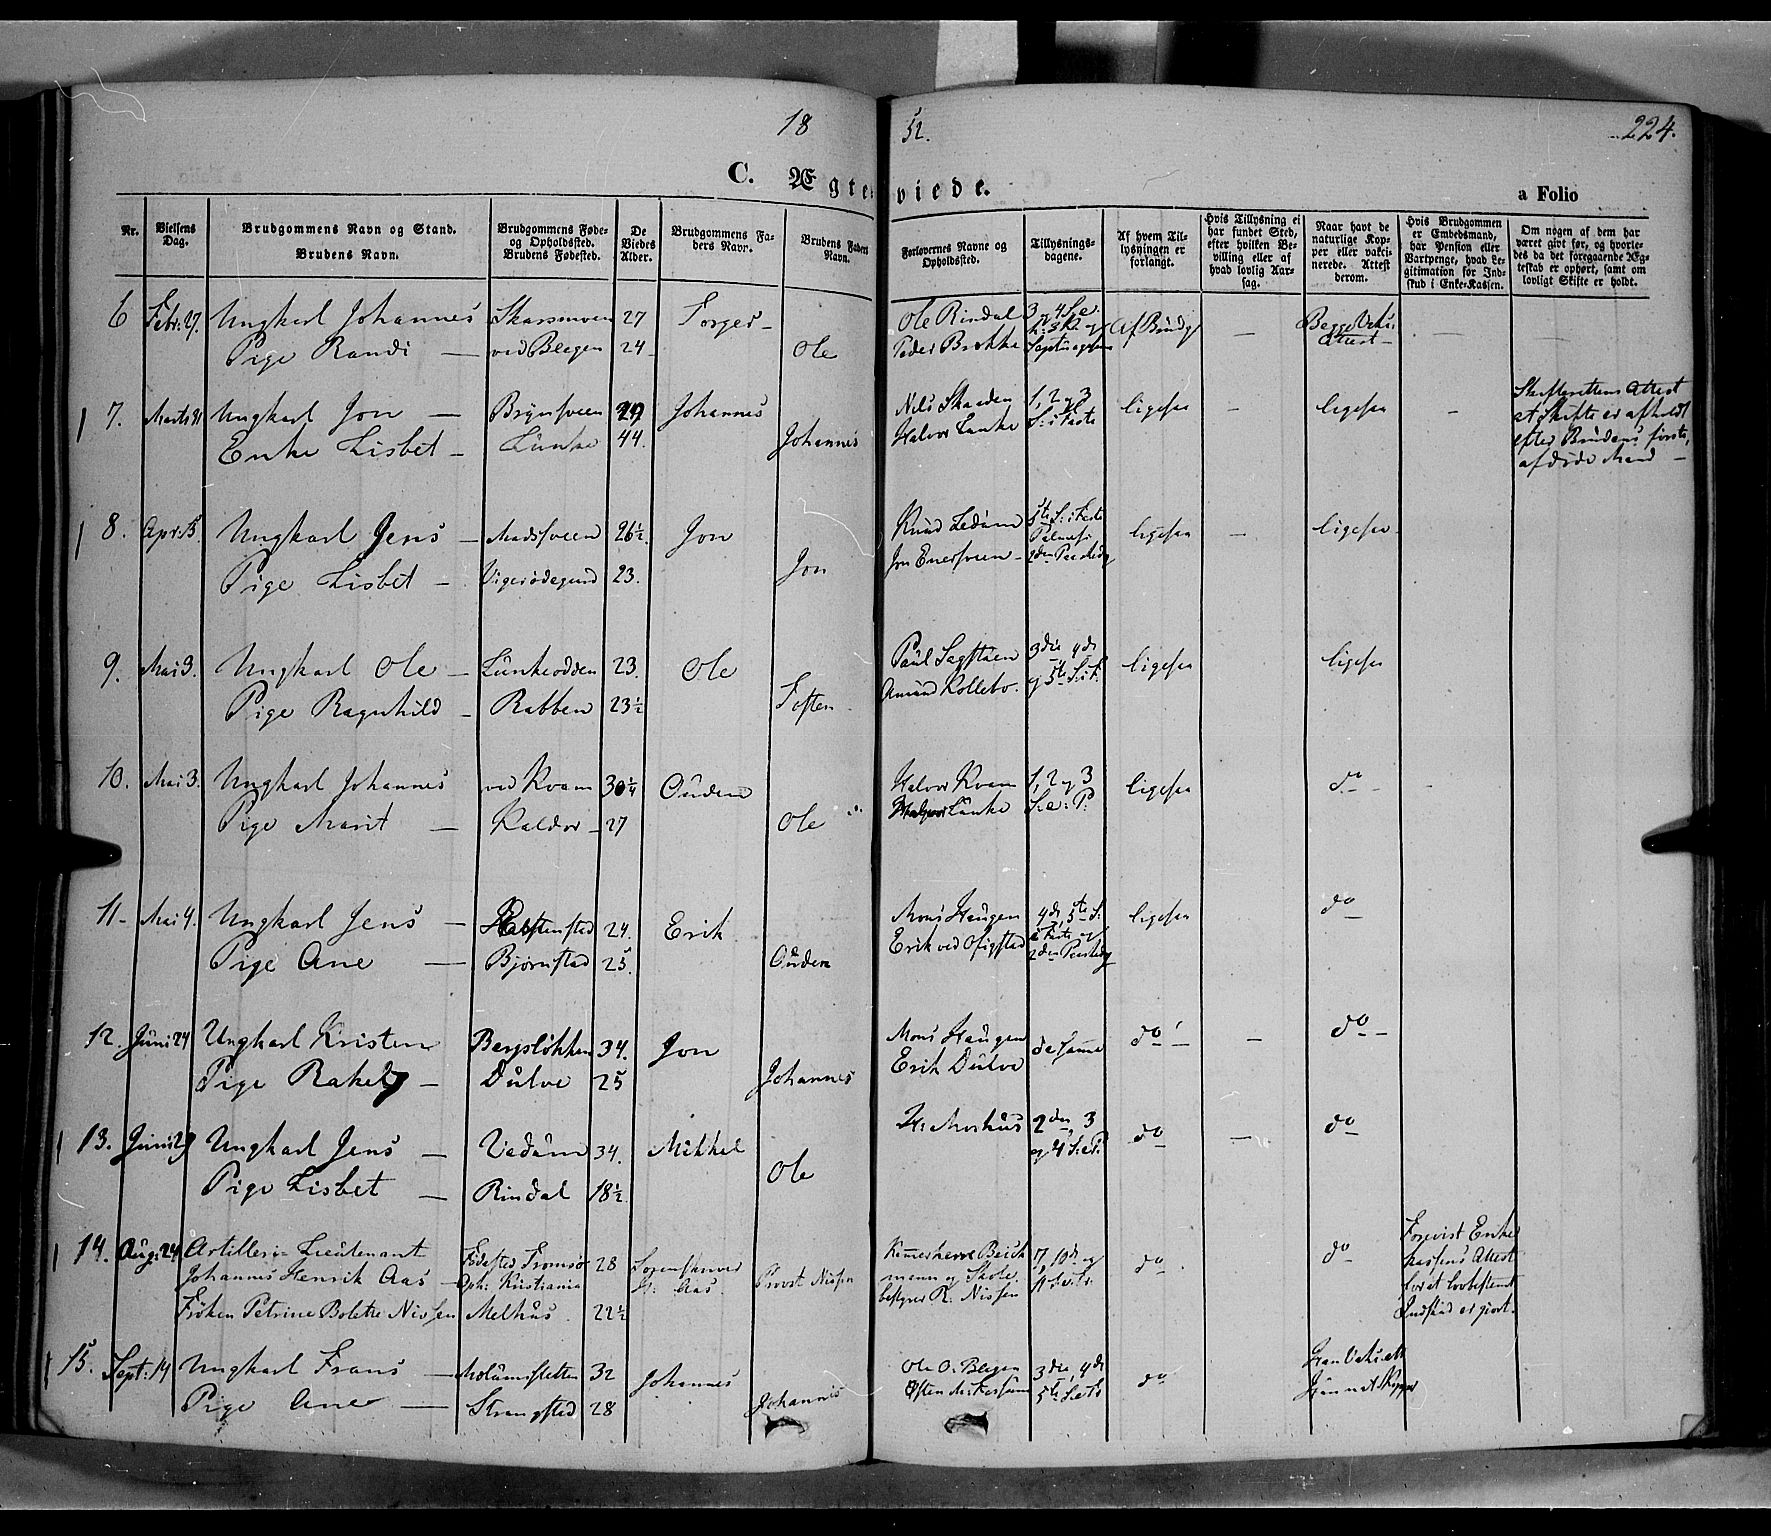 18 52. 224.
C. Ægteviede. a Folio
Nr.
Vielsens Dag.
Brudgommens Navn og Stand.
Brudens Navn.
Brudgommens Føde- og Opholdssted.
Brudens Fødested.
De Viedes Alder.
Brudgommens Faders Navn.
Brudens Faders Navn.
Forlovernes Navne og Opholdssted.
Tillysnings-dagene.
Af hvem Tillysningen er forlangt.
Hvis Tillysning ei har fundet Sted, efter hvilken Bevilling eller af hvad lovlig Aarsag.
Naar havt de naturlige Kopper eller vaccinerede. Attest derom.
Hvis Brudgommen er Embedsmand, har Pension eller Vartpenge, hvad Legitimation for Indskud i Enke-Kassen.
Om nogen af dem har været givt før, og hvorledes da det foregaaende Ægteskab er ophørt, samt om lovligt Skifte er holdt.
6 Febr: 27. Ungkarl Johannes Skarsmoen 27 Torger – Ole Rindal 3 og 4 Af Brudg – Begge Vaks:
Pige Randi – ved Blegen 24 Ole Peder Brekke attest –
7. Marts 31 Ungkarl Jon – Brynsveen 29 Johannes Nils Skaaden 1, 2 og 3 ligesaa – ligesaa – Skifterettens Attest
Enke Lisbet – Lunke 44. Johannes Halvor Lunke S: i Faste at Skifte er afholdt
efter Brudens første,
afdøde Mand –
8. Apr: 15. Ungkarl Jens – Madssveen 26½ Jon Knud Ledum 5te S: i Faste ligesaa – ligesaa
Pige Lisbet – Vigerødegaard 23. Jon Jon Enersveen – Palmes: 2den Paaskedg
9. Mai 3. Ungkarl Ole – Lunkeodden 23. Ole Paul Sagstuen 3die 4de ligesaa ligesaa
Pige Ragnhild – Rabben 23½ Tosten Amund Kollebo. og 5te S: i F.
10. Mai 3. Ungkarl Johannes ved Kvam 30¼ Ouden Halvor Kvam 1, 2 og 3 ligesaa do –
Pige Marit – Kaldor – 27 Ole Halvor Lunke S: e: P:
11 – Mai 4. Ungkarl Jens – 24. Erik Mons Haugen 4de, 5te S: ligesaa do
Pige Ane – Bjørnstad 25. Ouden Erik ved i Faste og 2den Paaskedg
12. Juni 24 Ungkarl Kristen Bergsløkken 34. Jon Mons Haugen de samme do – do –
Pige Rakel – Dulve 25 Johannes Erik Dulve
13. Juni 29 Ungkarl Jens – Vedum 34. Mikkel H: Moshus 2den, 3 do – do
Pige Lisbet – Rindal 18½ Ole og 4 S: e: P:
14. Aug: 24 Artilleri = Lieutenant Fødested Tromsø 28 Sorenskriver Provst Nissen do. do
Johannes Henrik Aas – Oph: Kristiania Aas mann og Skole-
Frøken Petrine Bolette Nissen Melhus. 22½ bestyrer R. Nissen
Forevist Enke
kassens Attest
for at lovbestemt
Indskud er gjort.
15. Sept: 14 Ungkarl Frans – 32 Johannes Ole O. Blegen 3die, 4de do Han Vaks: att
Pige Ane – Strangstad 28 Johannes 5te S: e: Hun nat. Kopper